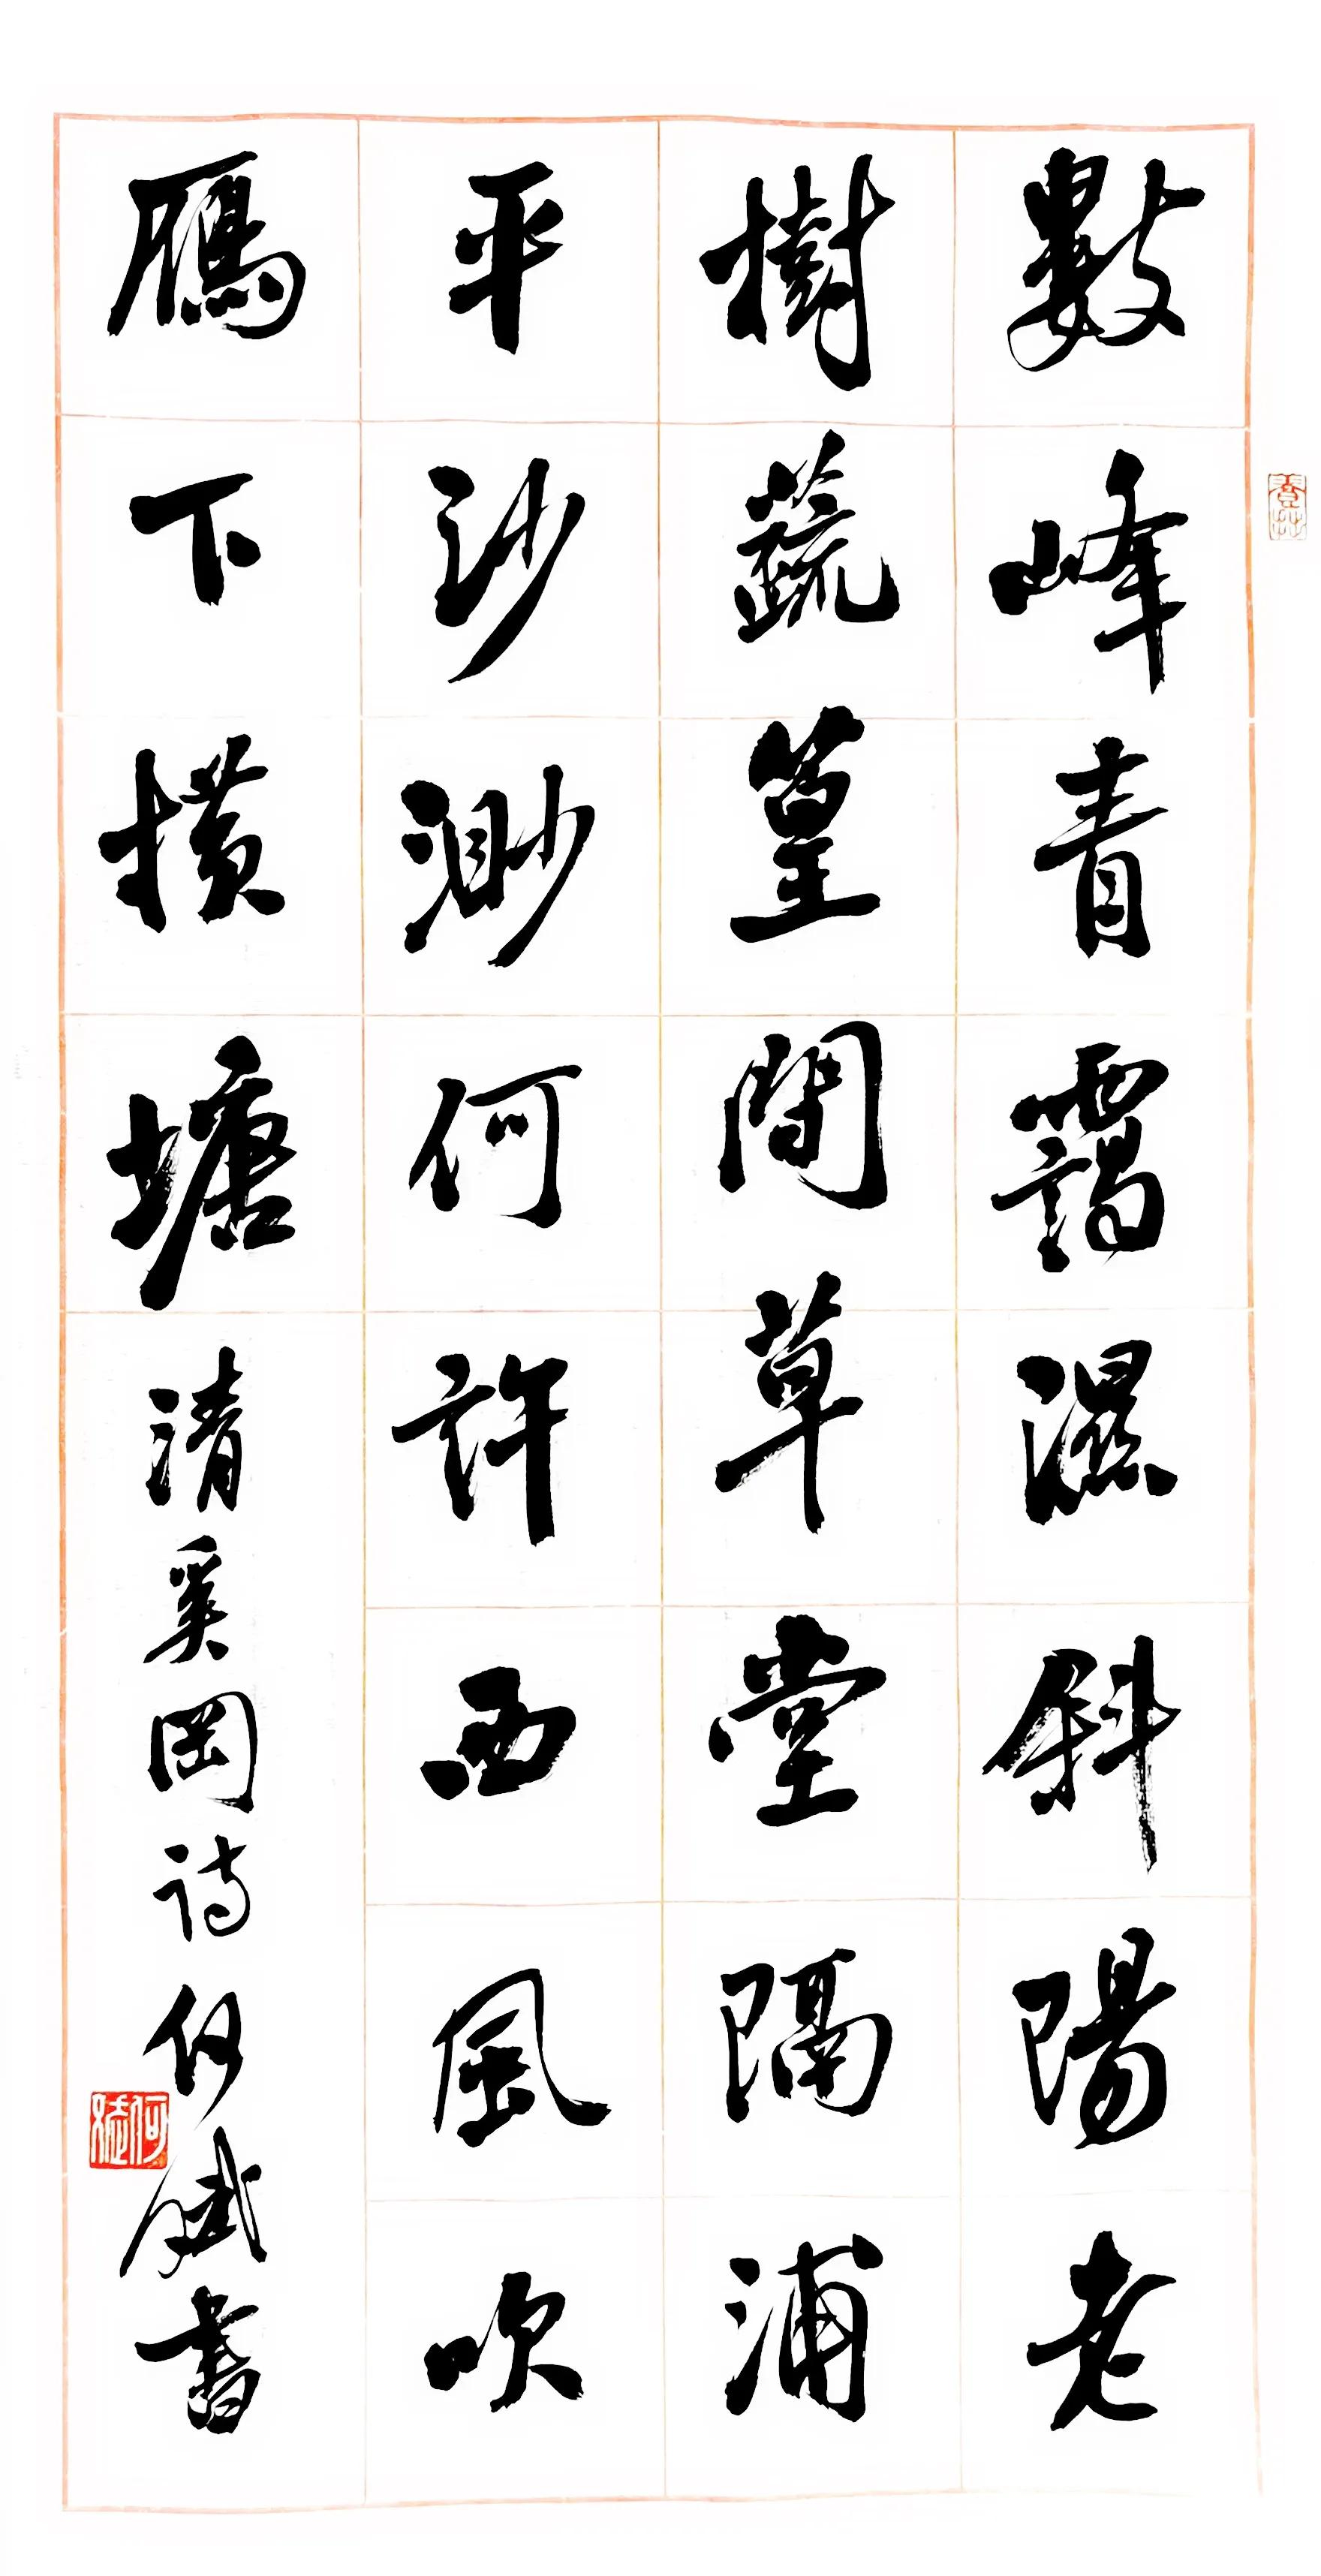 數峰青靄濕斜陽老
樹蔬篁間草堂隔浦
平沙渺何許西風吹
鴈下橫塘清奚岡詩何斌書